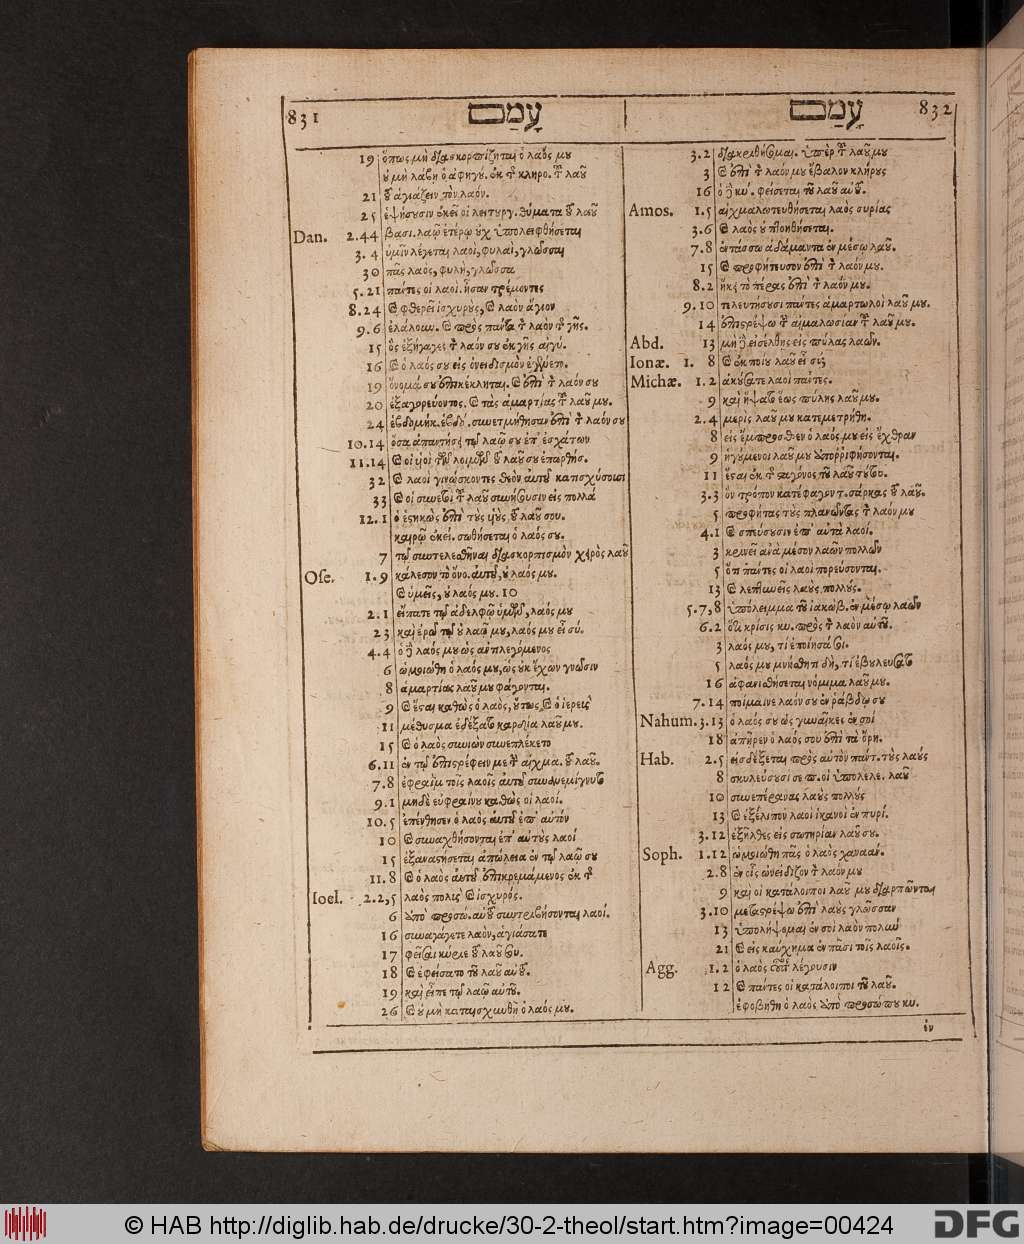 831 עָמַם
19 ὅπως μὴ διασκορπίζηται ὁ λαός μου
οὐ μὴ λάβη ὁ ἀφηγού. ἐκ τῆς κληρο. τοῦ λαοῦ
21 τοῦ ἁγιάζειν τὸν λαόν.
25 ἑψήσουσιν ἐκεῖ οἱ λειτουργ. θύματα τοῦ λαοῦ
Dan. 2.44 βασι. λαῷ ἑτέρῳ οὐχ ὑπολειφθήσεται
3.4 ὑμῖν λέγεται λαοὶ, φυλαὶ, γλῶσσαι
30 πᾶς λαος, φυλὴ, γλῶσσα
5.21 πάντες οἱ λαοί. ἦσαν τρέμοντες
8.24 καὶ φθερεῖ ἰσχυροὺς, καὶ λαὸν ἅγιον
9.6 ἐλάλουν. καὶ πρὸς πάντα τὸν λαὸν τῆς γῆς.
15 ὃς ἐξήγαγες τὸν λαόν σου ἐκ γῆς αἰγύ.
16 καὶ ὁ λαός σου εἰς ὀνειδισμὸν ἐγένετο.
19 ὄνομά σου ἐπικέκληται. καὶ ἐπὶ τὸν λαόν σου
20 ἐξαγορεύοντος. καὶ τὰς ἁμαρτίας τοῦ λαοῦ μου.
24 ἑβδομήκ. ἑβδό. συνετμήθησαν ἐπὶ τὸν λαόν σου
10.14 ὅσα ἀπαντήσει τῷ λαῷ σου ἐπ' ἐσχάτων
11.14 καὶ οἱ υἱοὶ τῶν λοιμῶν τοῦ λαοῦ σου ἐπαρθήσ.
32 καὶ λαοὶ γινώσκοντες θεὸν αὐτοῦ κατισχύσουσι
33 καὶ οἱ συνετοὶ τοῦ λαοῦ συνήσουσιν εἰς πολλά
12.1 ὁ ἑστηκὼς ἐπὶ τοὺς υἱοὺς τοῦ λαοῦ σου.
καιρῷ ἐκεί. σωθήσεται ὁ λαός σου.
7 τῷ συντελεσθῆναι διασκορπισμὸν χειρὸς λαοῦ
Ose. 1.9 κάλεσον τὸ ὄνο. αὐτοῦ, οὐ λαός μου.
καὶ ὑμεῖς, οὐ λαός μου. 10
2.1 εἴπατε τῷ ἀδελφῷ ὑμῶν, λαός μου
23 καὶ ἐρῶ τῷ οὐ λαῷ μου, λαός μου εἶ σύ.
4.4 ὁ δὲ λαός μου ὡς ἀντιλεγόμενος
6 ὡμοιώθη ὁ λαός μου, ὡς οὐκ ἔχων γνῶσιν
8 ἁμαρτίας λαοῦ μου φάγονται.
9 καὶ ἔσται καθὼς ὁ λαὸς, οὕτως, καὶ ὁ ἱερεὺς
11 μέθυσμα ἐδέξατο καρδία λαοῦ μου.
15 καὶ ὁ λαὸς συνιὼν συνεπλέκετο
6.11 ἐν τῷ ἐπιστρέφειν με τὴν αἰχμα. τοῦ λαοῦ.
7.8 ἐφραὶμ τοῖς λαοῖς αὐτοῦ συνανεμίγνυτο
9.1 μηδὲ εὐφραίνου καθὼς οἱ λαοί.
10.5 ἐπένθησεν ὁ λαὸς αὐτοῦ ἐπ' αὐτόν
10 καὶ συναχθήσονται ἐπ' αὐτοὺς λαοί
15 ἐξαναστήσεται ἀπώλεια ἐν τῷ λαῷ σου
11.8 καὶ ὁ λαὸς αὐτοῦ ἐπικρεμάμενος ἐκ τῆς
Ioel. 2.2,5 λαὸς πολὺς καὶ ἰσχυρός.
6 ἀπὸ προσώ. αὐτοῦ συντριβήσονται λαοί.
16 συναγάγετε λαὸν, ἁγιάσατε
17 φεῖσαι κύριε τοῦ λαοῦ σου.
18 καὶ ἐφείσατο τοῦ λαοῦ αὐτοῦ.
19 καὶ εἶπε τῷ λαῷ αὐτοῦ.
26 καὶ οὐ μὴ καταισχυνθῇ ὁ λαός μου.
עָמַם 832
3.2 διακριθήσομαι. ὑπὲρ τοῦ λαοῦ μου
3 καὶ ἐπὶ τὸν λαόν μου ἔβαλον κλήρους
16 ὁ δὲ κύ. φείσεται τοῦ λαοῦ αὐτοῦ.
Amos. 1.5 αἰχμαλωτευθήσεται λαὸς συρίας
3.6 καὶ λαὸς οὐ πτοηθήσεται.
7.8 ἐντάσσω ἀδάμαντα ἐν μέσῳ λαοῦ.
15 καὶ προφήτευσον ἐπὶ τὸν λαόν μου.
8.2 ἥκει τὸ πέρας ἐπὶ τὸν λαόν μου.
9.10 τελευτήσουσι πάντες ἁμαρτωλοὶ λαοῦ μου.
14 ἐπιστρέψω τὴν αἰχμαλωσίαν τοῦ λαοῦ μου.
Abd. 13 μὴ δὲ εἰσέλθης εἰς πύλας λαῶν.
Ionæ. 1. 8 καὶ ἐκ ποίου λαοῦ εἶ σύ;
Michæ. 1.2 ἀκούσατε λαοὶ πάντες.
9 καὶ ἥψατο ἕως πύλης λαοῦ μου.
2.4 μερὶς λαοῦ μου κατεμετρήθη.
8 εἰς ἔμπροσθεν ὁ λαός μου εἰς ἔχθραν
9 ἡγούμενοι λαοῦ μου ἀπορριφήσονται.
11 ἔσται ἐκ τῆς σταγόνος τοῦ λαοῦ τούτου.
3.3 ὃν τρόπον κατέφαγον τ. σάρκας τοῦ λαοῦ.
5 προφήτας τοὺς πλανῶντας τὸν λαόν μου
4.1 καὶ σπεύσουσιν ἐπ' αὐτὰ λαοί.
3 κρινεῖ ἀνὰ μέσον λαῶν πολλῶν
5 ὅτι πάντες οἱ λαοὶ πορεύσονται.
13 καὶ λεπτυνεῖς λαοὺς πολλούς.
5.7,8 ὑπόλειμμα τοῦ ἰακώβ. ἐν μέσῳ λαῶν
6.2 ὅτι κρίσις κυ. πρὸς τὸν λαὸν αὐτοῦ.
3 λαός μου, τί ἐποίησά σοι.
5 λαός μου μνήσθητι δὴ, τί ἐβουλεύσατο
16 ἀφανισθήσεται νόμιμα λαοῦ μου.
7.14 ποίμαινε λαόν σου ἐν ῥάβδῳ σου
Nahum. 3.13 ὁ λαός σου ὡς γυναῖκες ἐν σοί
18 ἀπῆρεν ὁ λαός σου ἐπὶ τὰ ὄρη.
Hab. 2.5 εἰσδέξεται πρὸς αὐτὸν πάντ. τοὺς λαούς
8 σκυλεύσουσί σε π. οἱ ὑπολελε. λαοῦ
10 συνεπέρανας λαοὺς πολλούς
13 καὶ ἐξέλιπον λαοὶ ἱκανοὶ ἐν πυρί.
3.12 ἐξῆλθες εἰς σωτηρίαν λαοῦ σου.
Soph. 1.12 ὡμοιώθη πᾶς ὁ λαὸς χαναάν.
2.8 ἐν οἷς ὠνείδιζον τὸν λαόν μου
9 καὶ οἱ κατάλοιποι λαοῦ μου διαρπῶνται
3.10 μεταστρέψω ἐπὶ λαοὺς γλῶσσαν
13 ὑπολήψομαι ἐν σοὶ λαὸν πολύν
21 καὶ εἰς καύχημα ἐν πᾶσι τοῖς λαοῖς.
Agg. 1.2 ὁ λαὸς οὗτος λέγουσιν
12 καὶ πάντες οἱ κατάλοιποι τοῦ λαοῦ.
ἐφοβήθη ὁ λαὸς ἀπὸ προσώπου κυ.
ἐν
© HAB http://diglib.hab.de/drucke/30-2-theol/start.htm?image=00424
DFG